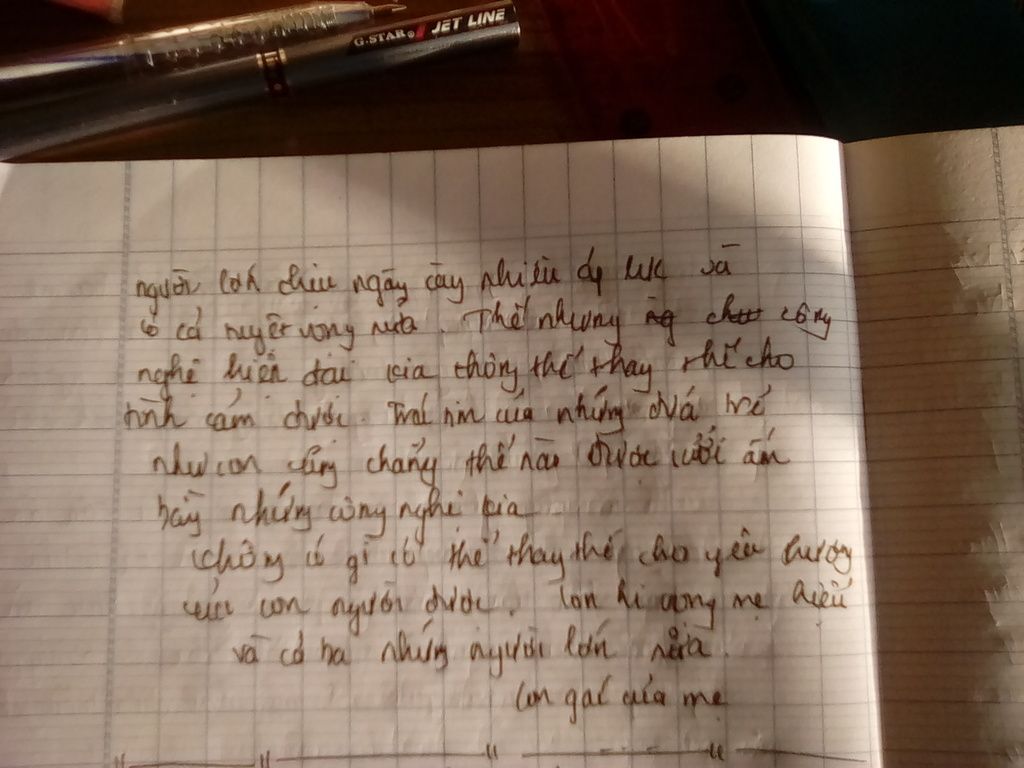 G-STAR® JET LINE
người lớn chịu ngày càng nhiều áp lực và
có cả tuyệt vọng nữa. Thế nhưng công
nghệ hiện đại kia không thể thay thế cho
tình cảm được. Trái tim của những đứa trẻ
như con cũng chẳng thể nào được sưởi ấm
bằng những công nghệ kia
không có gì có thể thay thế cho yêu thương
của con người được. Con hi vọng mẹ hiểu
và cả ba những người lớn nữa.
Con gái của mẹ